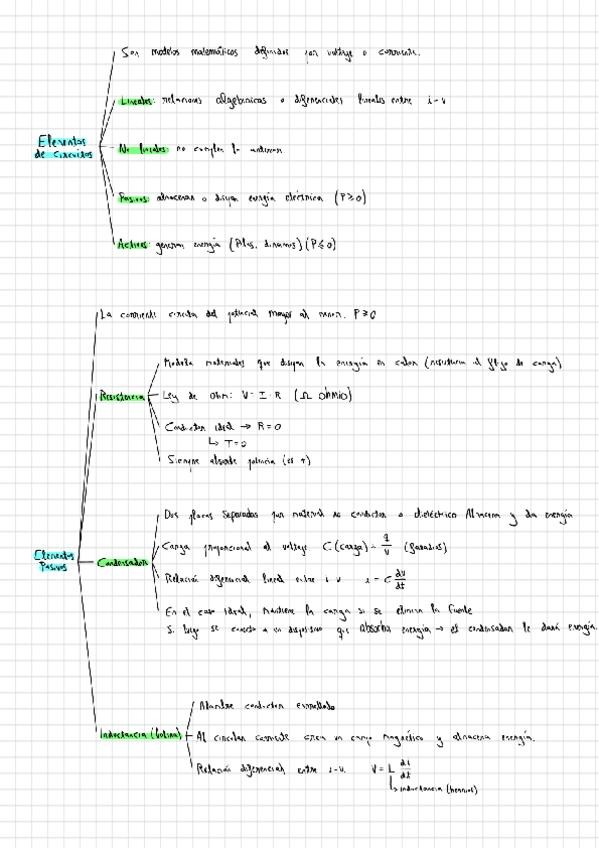 Son modelos matemáticos definidos por voltaje o corriente.
Lineales: relaciones algebraicas o diferenciales lineales entre i-v
Elementos
de circuitos
No lineales: no cumplen lo anterior
Pasivos: almacenan o disipan energía eléctrica (P≥0)
Activos: generan energía (Pilas, dinamos) (P≤0)
La corriente circula del potencial mayor al menor. P≥0
Modela materiales que disipan la energía en calor (resistencia al flujo de carga)
Resistencia
Ley de Ohm: V = I·R (Ω ohmio)
Conductor ideal → R=0
↳ T=0
Siempre absorbe potencia (es +)
Dos placas separadas por material no conductor o dieléctrico Almacena y da energía
Carga proporcional al voltaje C (carga) = q/V (faradios)
Elementos
Pasivos
Condensador
Relación diferencial lineal entre i v i = C dv/dt
En el caso ideal, mantiene la carga si se elimina la fuente
Si luego se conecta a un dispositivo que absorba energía → el condensador le dará energía.
Alambre conductor enrollado
Inductancia (bobina)
Al circular corriente crea un campo magnético y almacena energía.
Relación diferencial entre i-v. V = L di/dt
↳ inductancia (henrios)